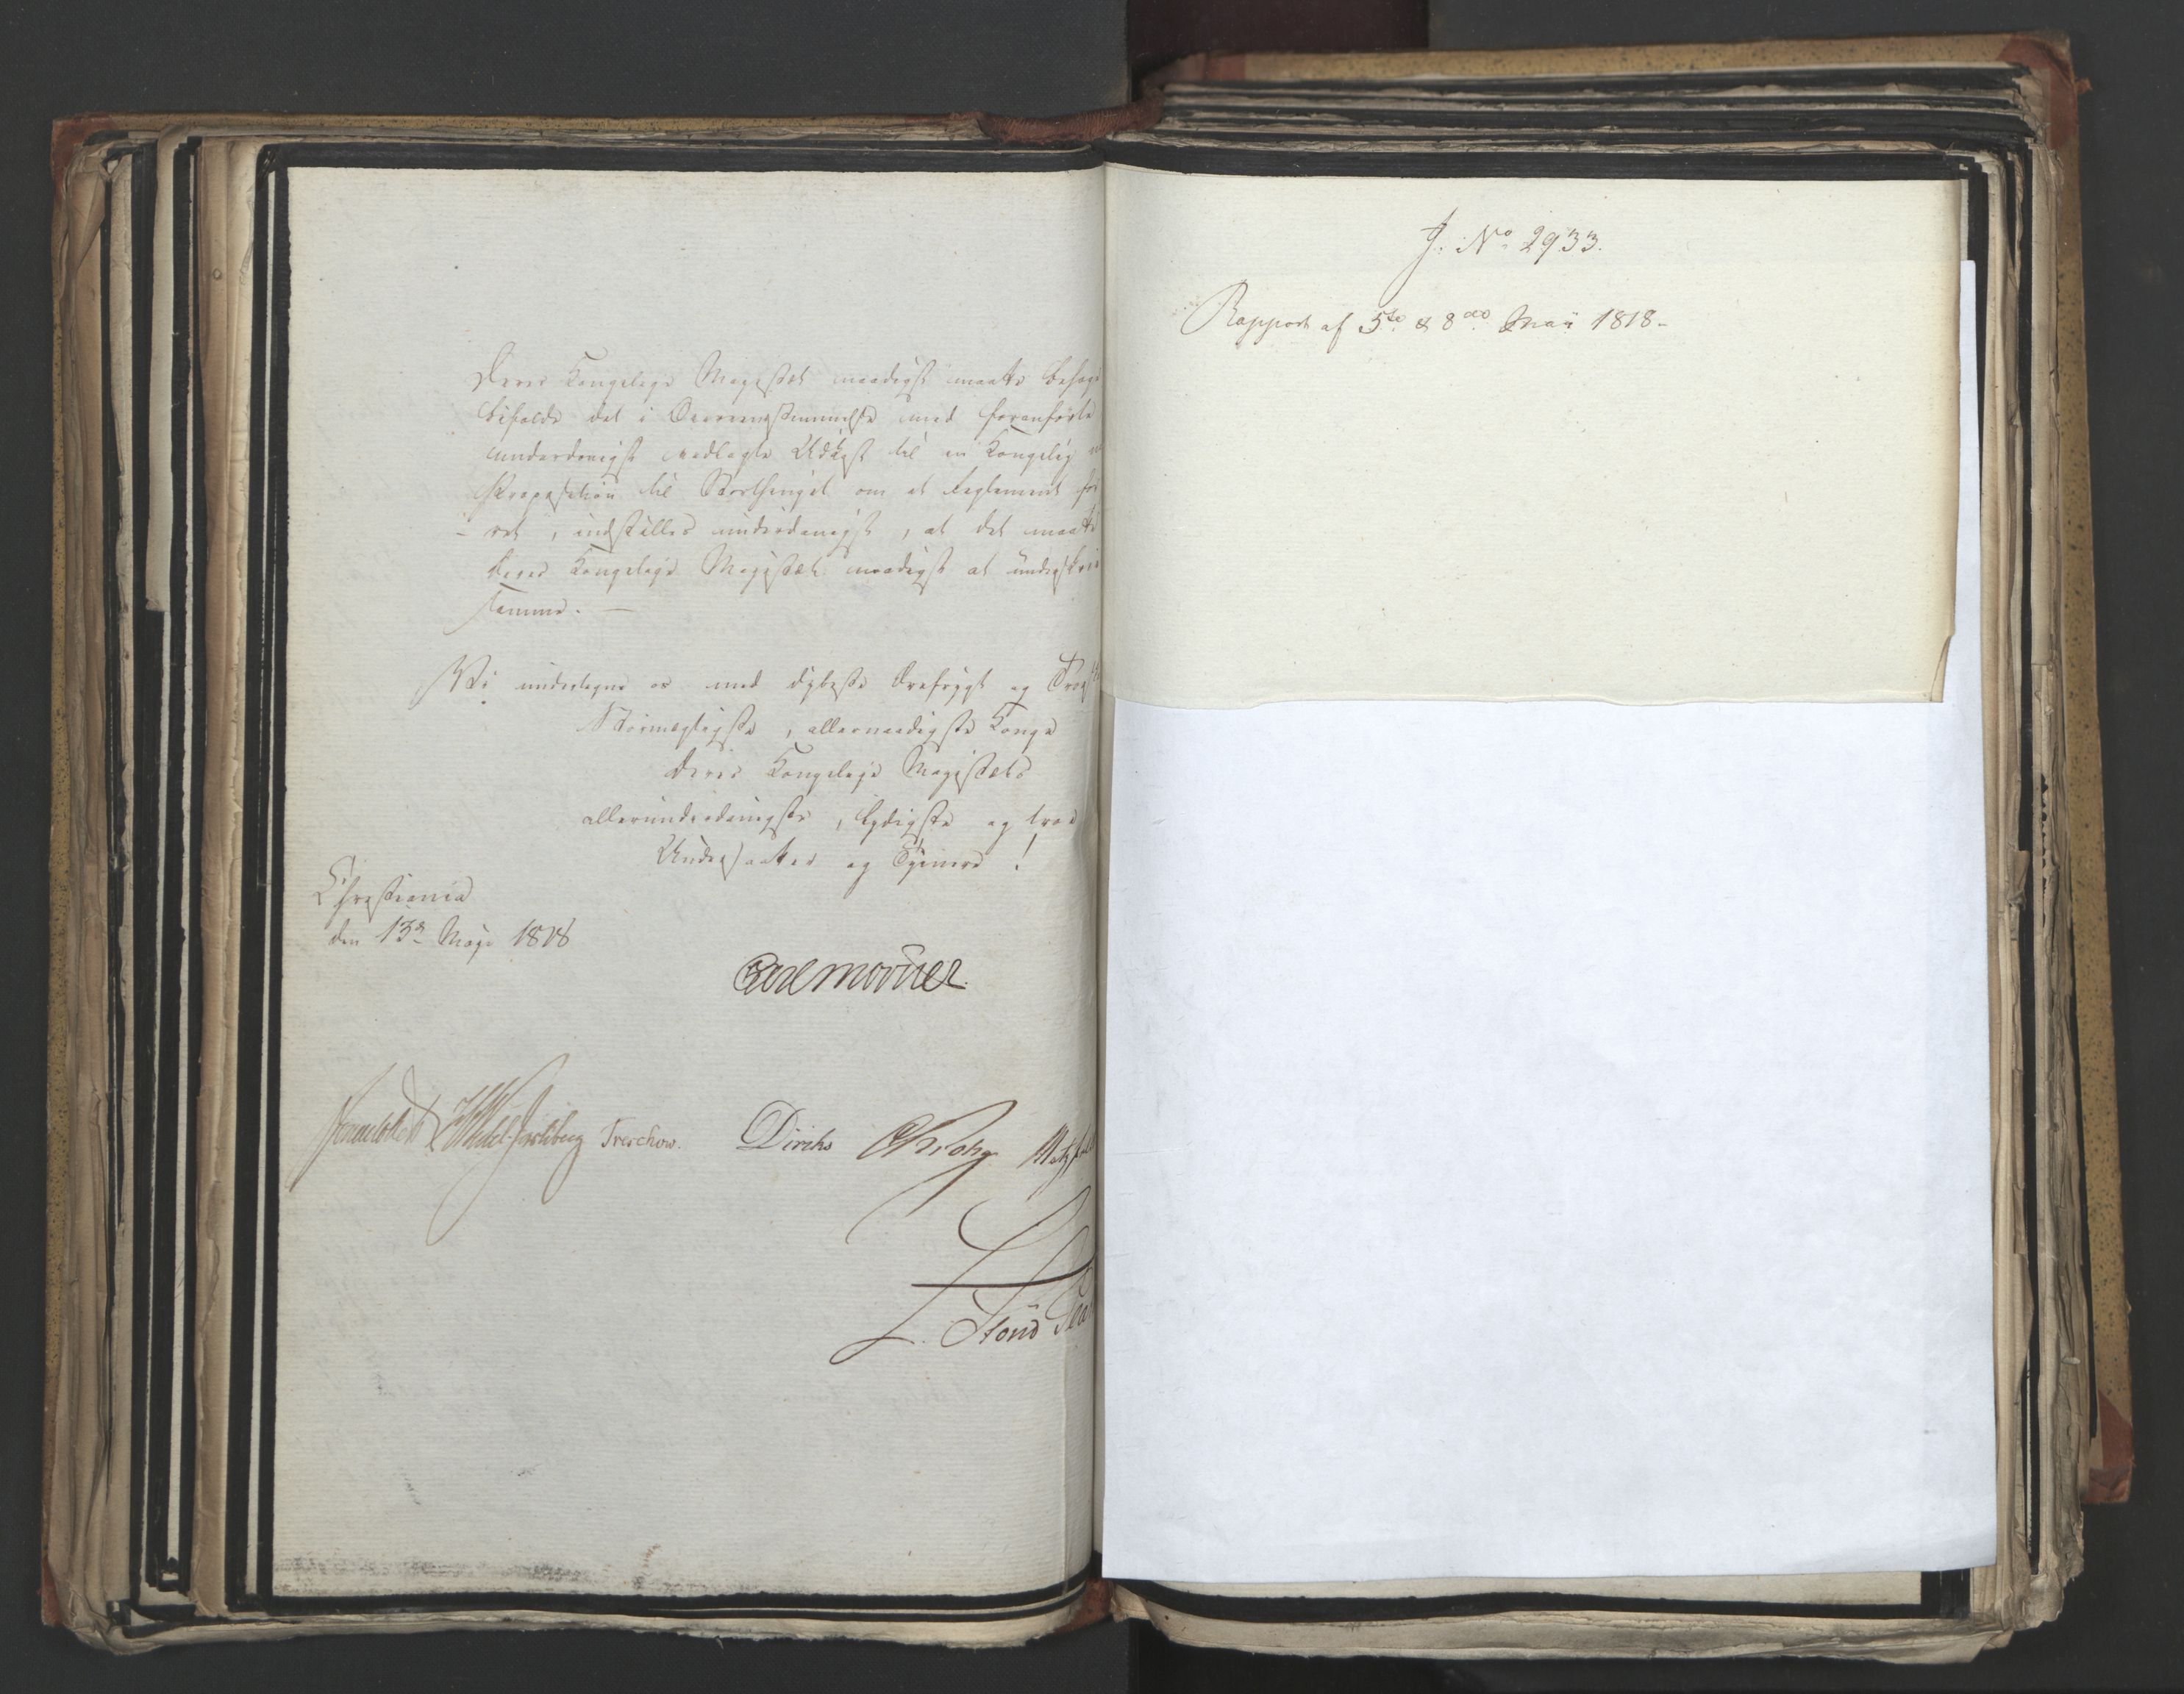 Deres Kongelige Majestæt naadigst maatte behage
bifalde det i Overeensstemmelse med foranførte
underdanigst vedlagte Udkast til en Kongelig
Proposition til Storthinget om et Reglement for
- ret, indstilles underdanigst, at det maatte
Deres Kongelige Majestæt naadigst at underskrive
samme. —
Vi undertegne os med dybeste Ærefrygt og
Stormægtigste, allernaadigste Konge
Deres Kongelige Majestæts
allerunderdanigste, lydigste og troe
Undersaatter og Tjenere!
Christiania
den 13de Maji 1818
Carl Mörner
Sommerhielm HWedel-Jarlsberg Treschow. Diriks CKrohg Motzfeldt
J. No 2933.
Rapport af 5te & 8de Maii 1818-